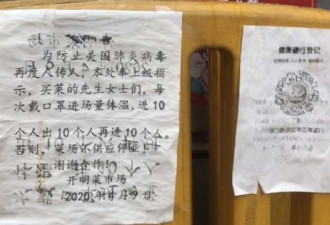 为防止美国肺炎病毒
再度人传人,本处奉上级指
示,买菜的先生女士们,每
次戴口罩进场量体温,进10
个人出10个人再进10个人。
否则,菜场不供应停业。
谢谢合作!
开明菜市场
2020年 月9日
健康通行登记